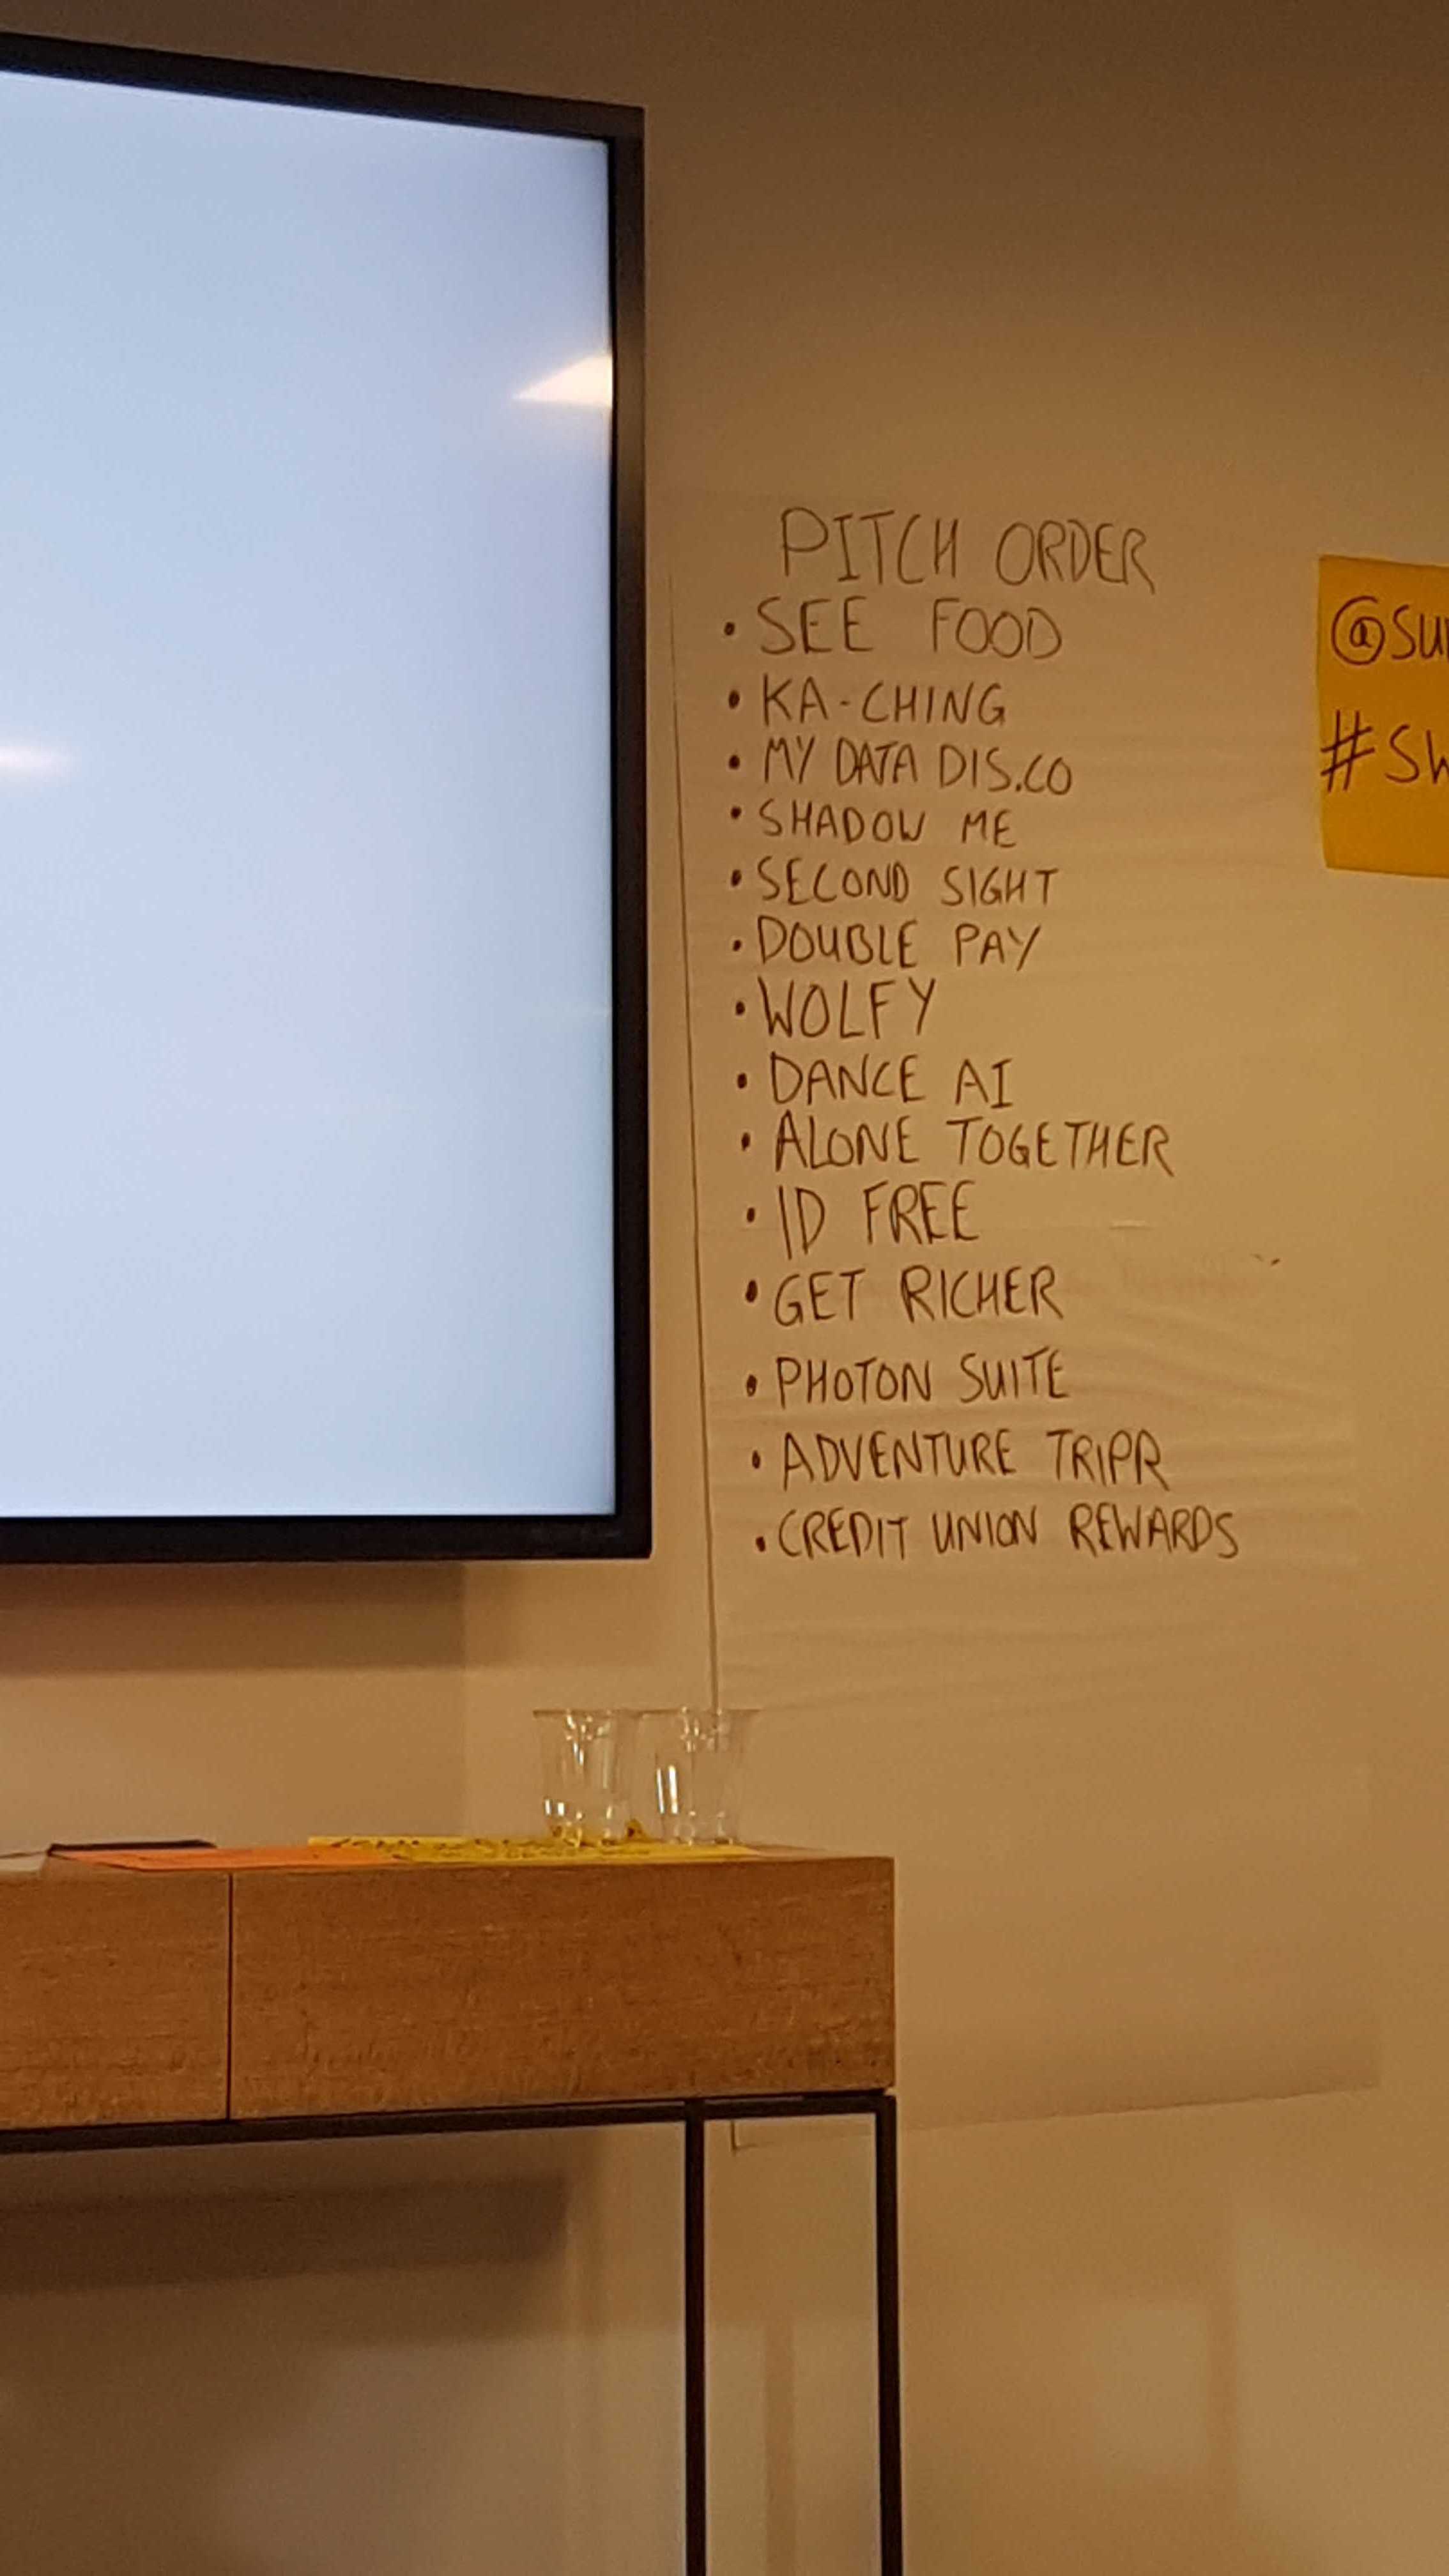 PITCH ORDER
• SEE FOOD
• KA-CHING
• MY DATA DIS.CO
• SHADOW ME
• SECOND SIGHT
• DOUBLE PAY
• WOLFY
• DANCE AI
• ALONE TOGETHER
• ID FREE
• GET RICHER
• PHOTON SUITE
• ADVENTURE TRIPR
• CREDIT UNION REWARDS